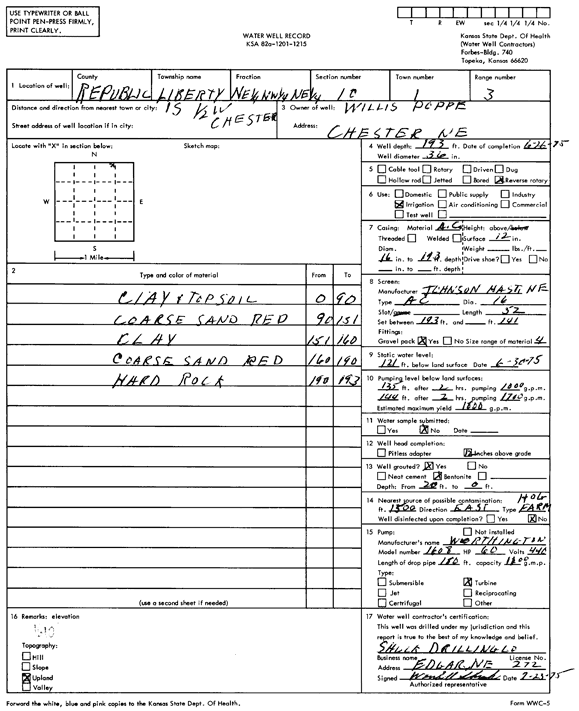 USE TYPEWRITER OR BALL
POINT PEN-PRESS FIRMLY,
PRINT CLEARLY.
WATER WELL RECORD
KSA 82a-1201-1215
T R EW sec 1/4 1/4 1/4 No.
Kansas State Dept. Of Health
(Water Well Contractors)
Forbes-Bldg. 740
Topeka, Kansas 66620
1 Location of well: County REPUBLIC Township name LIBERTY Fraction NE¼ NW¼ NE¼ Section number 10 Town number 1 Range number 3
Distance and direction from nearest town or city: 1S ½W CHESTER
Street address of well location if in city:
3 Owner of well: WILLIS POPPE
Address: CHESTER NE
Locate with "X" in section below: Sketch map:
N
W E
S
1 Mile
4 Well depth: 193 ft. Date of completion 6-26-75
Well diameter 36 in.
5 Cable tool Rotary Driven Dug
Hollow rod Jetted Bored X Reverse rotary
6 Use: Domestic Public supply Industry
X Irrigation Air conditioning Commercial
Test well
7 Casing: Material A.C. Height: above/below
Threaded Welded Surface 12 in.
Diam. Weight lbs./ft.
16 in. to 193 ft. depth Drive shoe? Yes No
in. to ft. depth
2 Type and color of material From To
CLAY & TOPSOIL 0 90
COARSE SAND RED 90 151
CLAY 151 160
COARSE SAND RED 160 190
HARD ROCK 190 193
(use a second sheet if needed)
8 Screen:
Manufacturer JOHNSON HAST. NE
Type AC Dia. 16
Slot/gauze Length 52
Set between 193 ft. and 141 ft.
Fittings:
Gravel pack X Yes No Size range of material 4
9 Static water level:
121 ft. below land surface Date 6-30-75
10 Pumping level below land surfaces:
135 ft. after 2 hrs. pumping 1000 g.p.m.
144 ft. after 2 hrs. pumping 1700 g.p.m.
Estimated maximum yield 1800 g.p.m.
11 Water sample submitted:
Yes X No Date
12 Well head completion:
Pitless adapter 12 Inches above grade
13 Well grouted? X Yes No
Neat cement X Bentonite
Depth: From 20 ft. to 0 ft.
14 Nearest source of possible contamination: HOG
ft. 1500 Direction EAST Type FARM
Well disinfected upon completion? Yes X No
15 Pump: Not installed
Manufacturer's name WORTHINGTON
Model number 1608 HP 60 Volts 440
Length of drop pipe 180 ft. capacity 1800 g.m.p.
Type:
Submersible X Turbine
Jet Reciprocating
Certrifugal Other
16 Remarks: elevation
Topography:
Hill
Slope
X Upland
Valley
17 Water well contractor's certification:
This well was drilled under my jurisdiction and this
report is true to the best of my knowledge and belief.
SHUCK DRILLING CO
Business name License No.
Address EDGAR, NE 272
Signed Date 7-23-75
Authorized representative
Forward the white, blue and pink copies to the Kansas State Dept. Of Health.
Form WWC-5